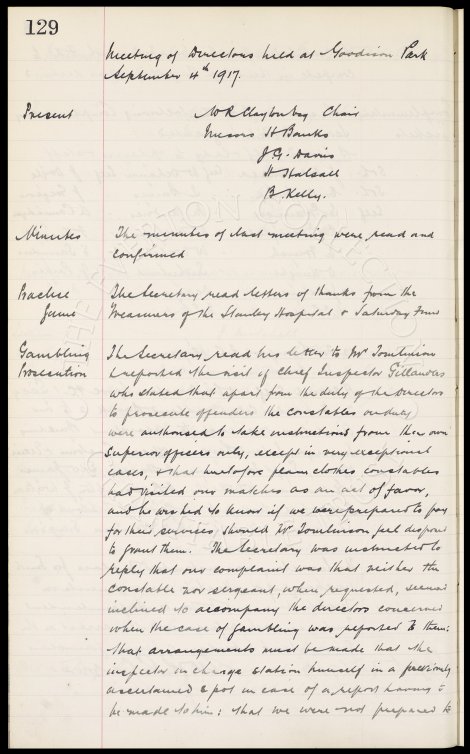 129
Meeting of Directors held at Goodison Park
September 4th 1917.
Present W R Clayton Esq Chair
Messrs H Banks
J G. Davis
H Halsall
B. Kelly.
Minutes The minutes of last meeting were read and
confirmed
Practice The Secretary read letters of thanks from the
Game Treasurers of the Stanley Hospital & Saturday Fund
Gambling The Secretary read his letter to Mr Tomlinson
Prosecution & reported the visit of Chief Inspector Gillandas
who stated that apart from the duty of the Directors
to prosecute offenders the constables on duty
were authorised to take instructions from their own
superior officers only, except in very exceptional
cases, & that heretofore plain clothes constables
had visited our matches as an act of favor,
and he wished to know if we were prepared to pay
for their services should Mr Tomlinson feel disposed
to grant them. The Secretary was instructed to
reply that our complaint was that neither the
constable nor sergeant, when requested, seemed
inclined to accompany the directors concerned
when the case of gambling was reported to them:
that arrangements must be made that the
inspector in charge station himself in a previously
ascertained spot in case of a report having to
be made to him: that we were not prepared to